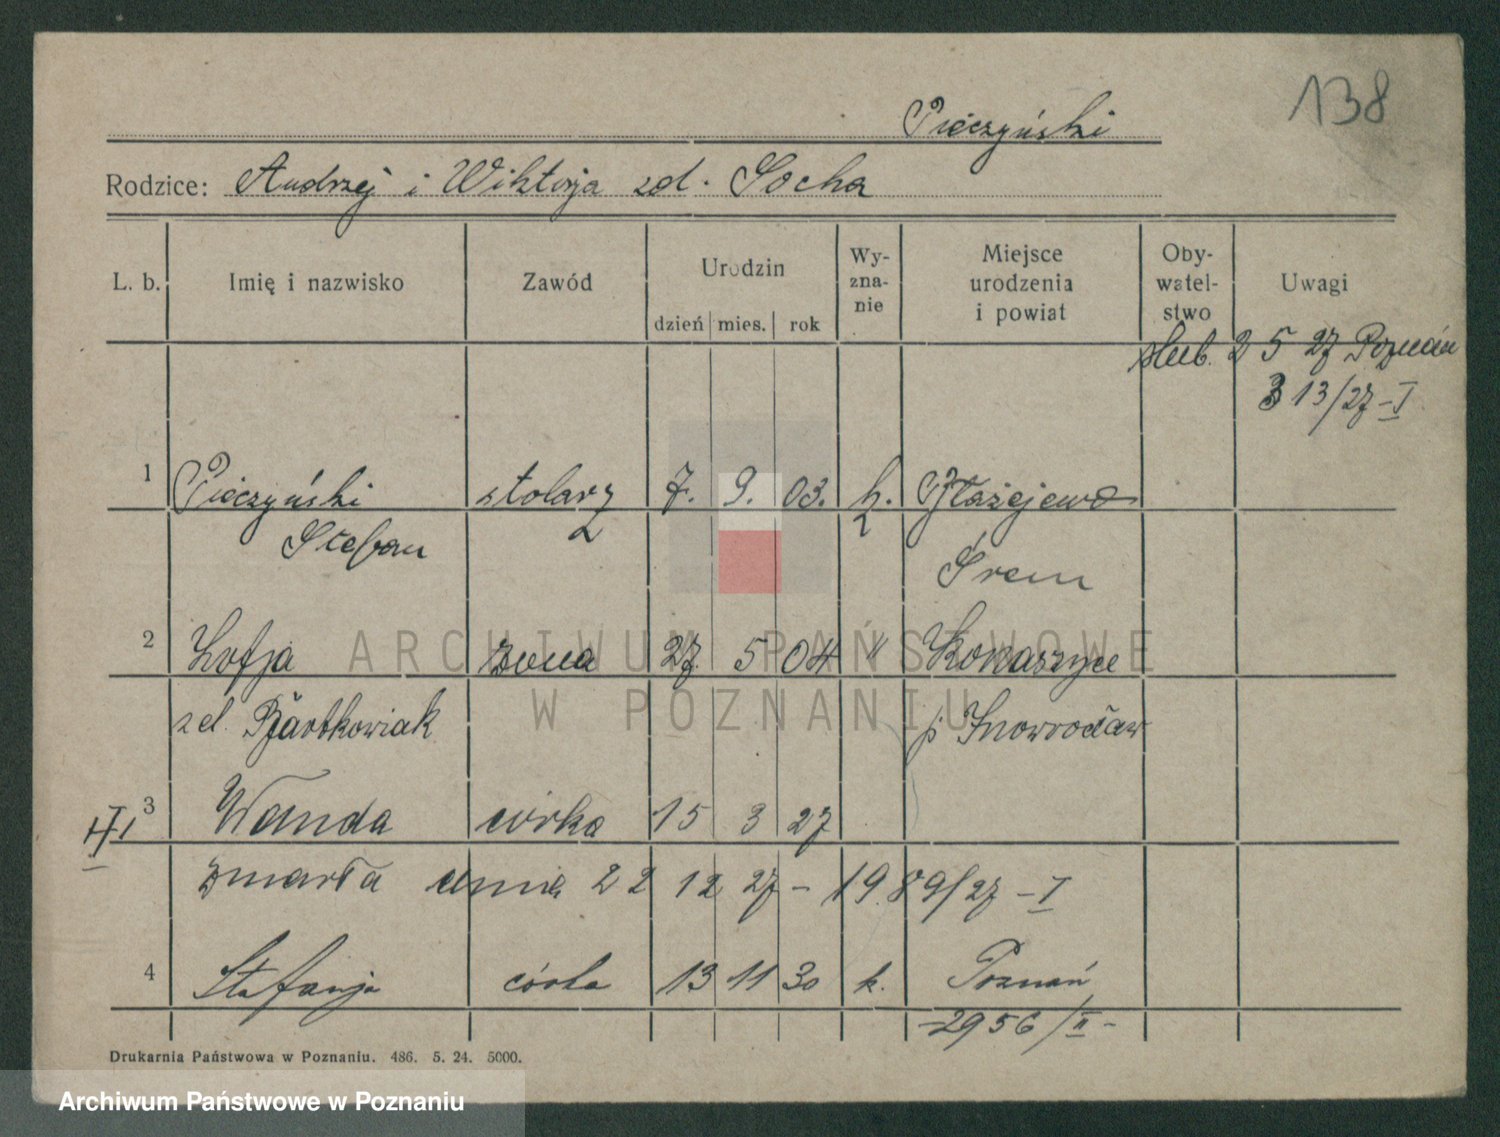 138
Pieczyński
Rodzice: Andrzej i Wiktorja zd. Socha
L. b. Imię i nazwisko Zawód Urodzin dzień mies. rok Wy-zna-nie Miejsce urodzenia i powiat Oby-watel-stwo Uwagi
ślub. 2 5 27 Poznań
313/27-I
1 Pieczyński stolarz 7. 9. 03. k. Błażejewo
Stefan Śrem
2 Zofja żona 27. 5 04 " Konaszyce
zd. Bartkowiak p. Inowrocław
3 Wanda córka 15 3 27
zmarła dnia 22 12 27 - 1989/27 - I
4 Stefanja córka 13 11 30 k. Poznań
-2956/II-
Drukarnia Państwowa w Poznaniu. 486. 5. 24. 5000.
ARCHIWUM PAŃSTWOWE
W POZNANIU
Archiwum Państwowe w Poznaniu